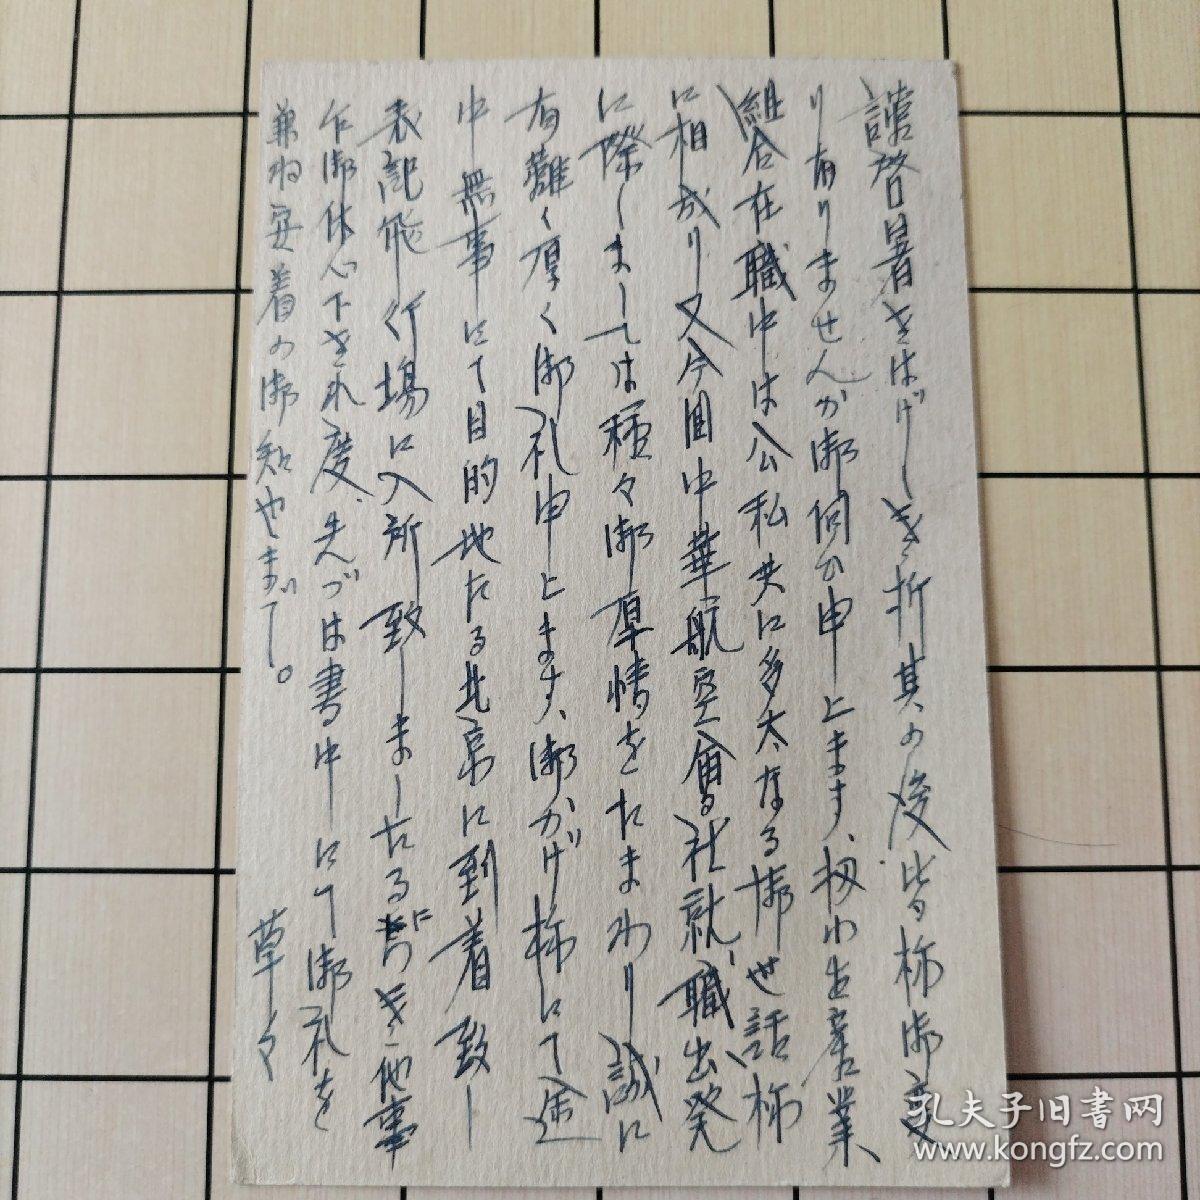 謹啓暑さはげしき折其の後皆様御変
り有りませんか御伺ひ申上ます、扨而生産業
組合在職中は公私共に多大なる御世話様
に相成り又今回中華航空會社就職出発
に際しましては種々御厚情をたまわり誠に
有難く厚く御礼申上ます、御かげ様にて途
中無事にて目的地たる北京に到着致し
表記飛行場に入所致しましたる
乍御休心下され度、先づは書中にて御礼を
兼ね安着の御知せまで。
草々
孔夫子旧书网
www.kongfz.com